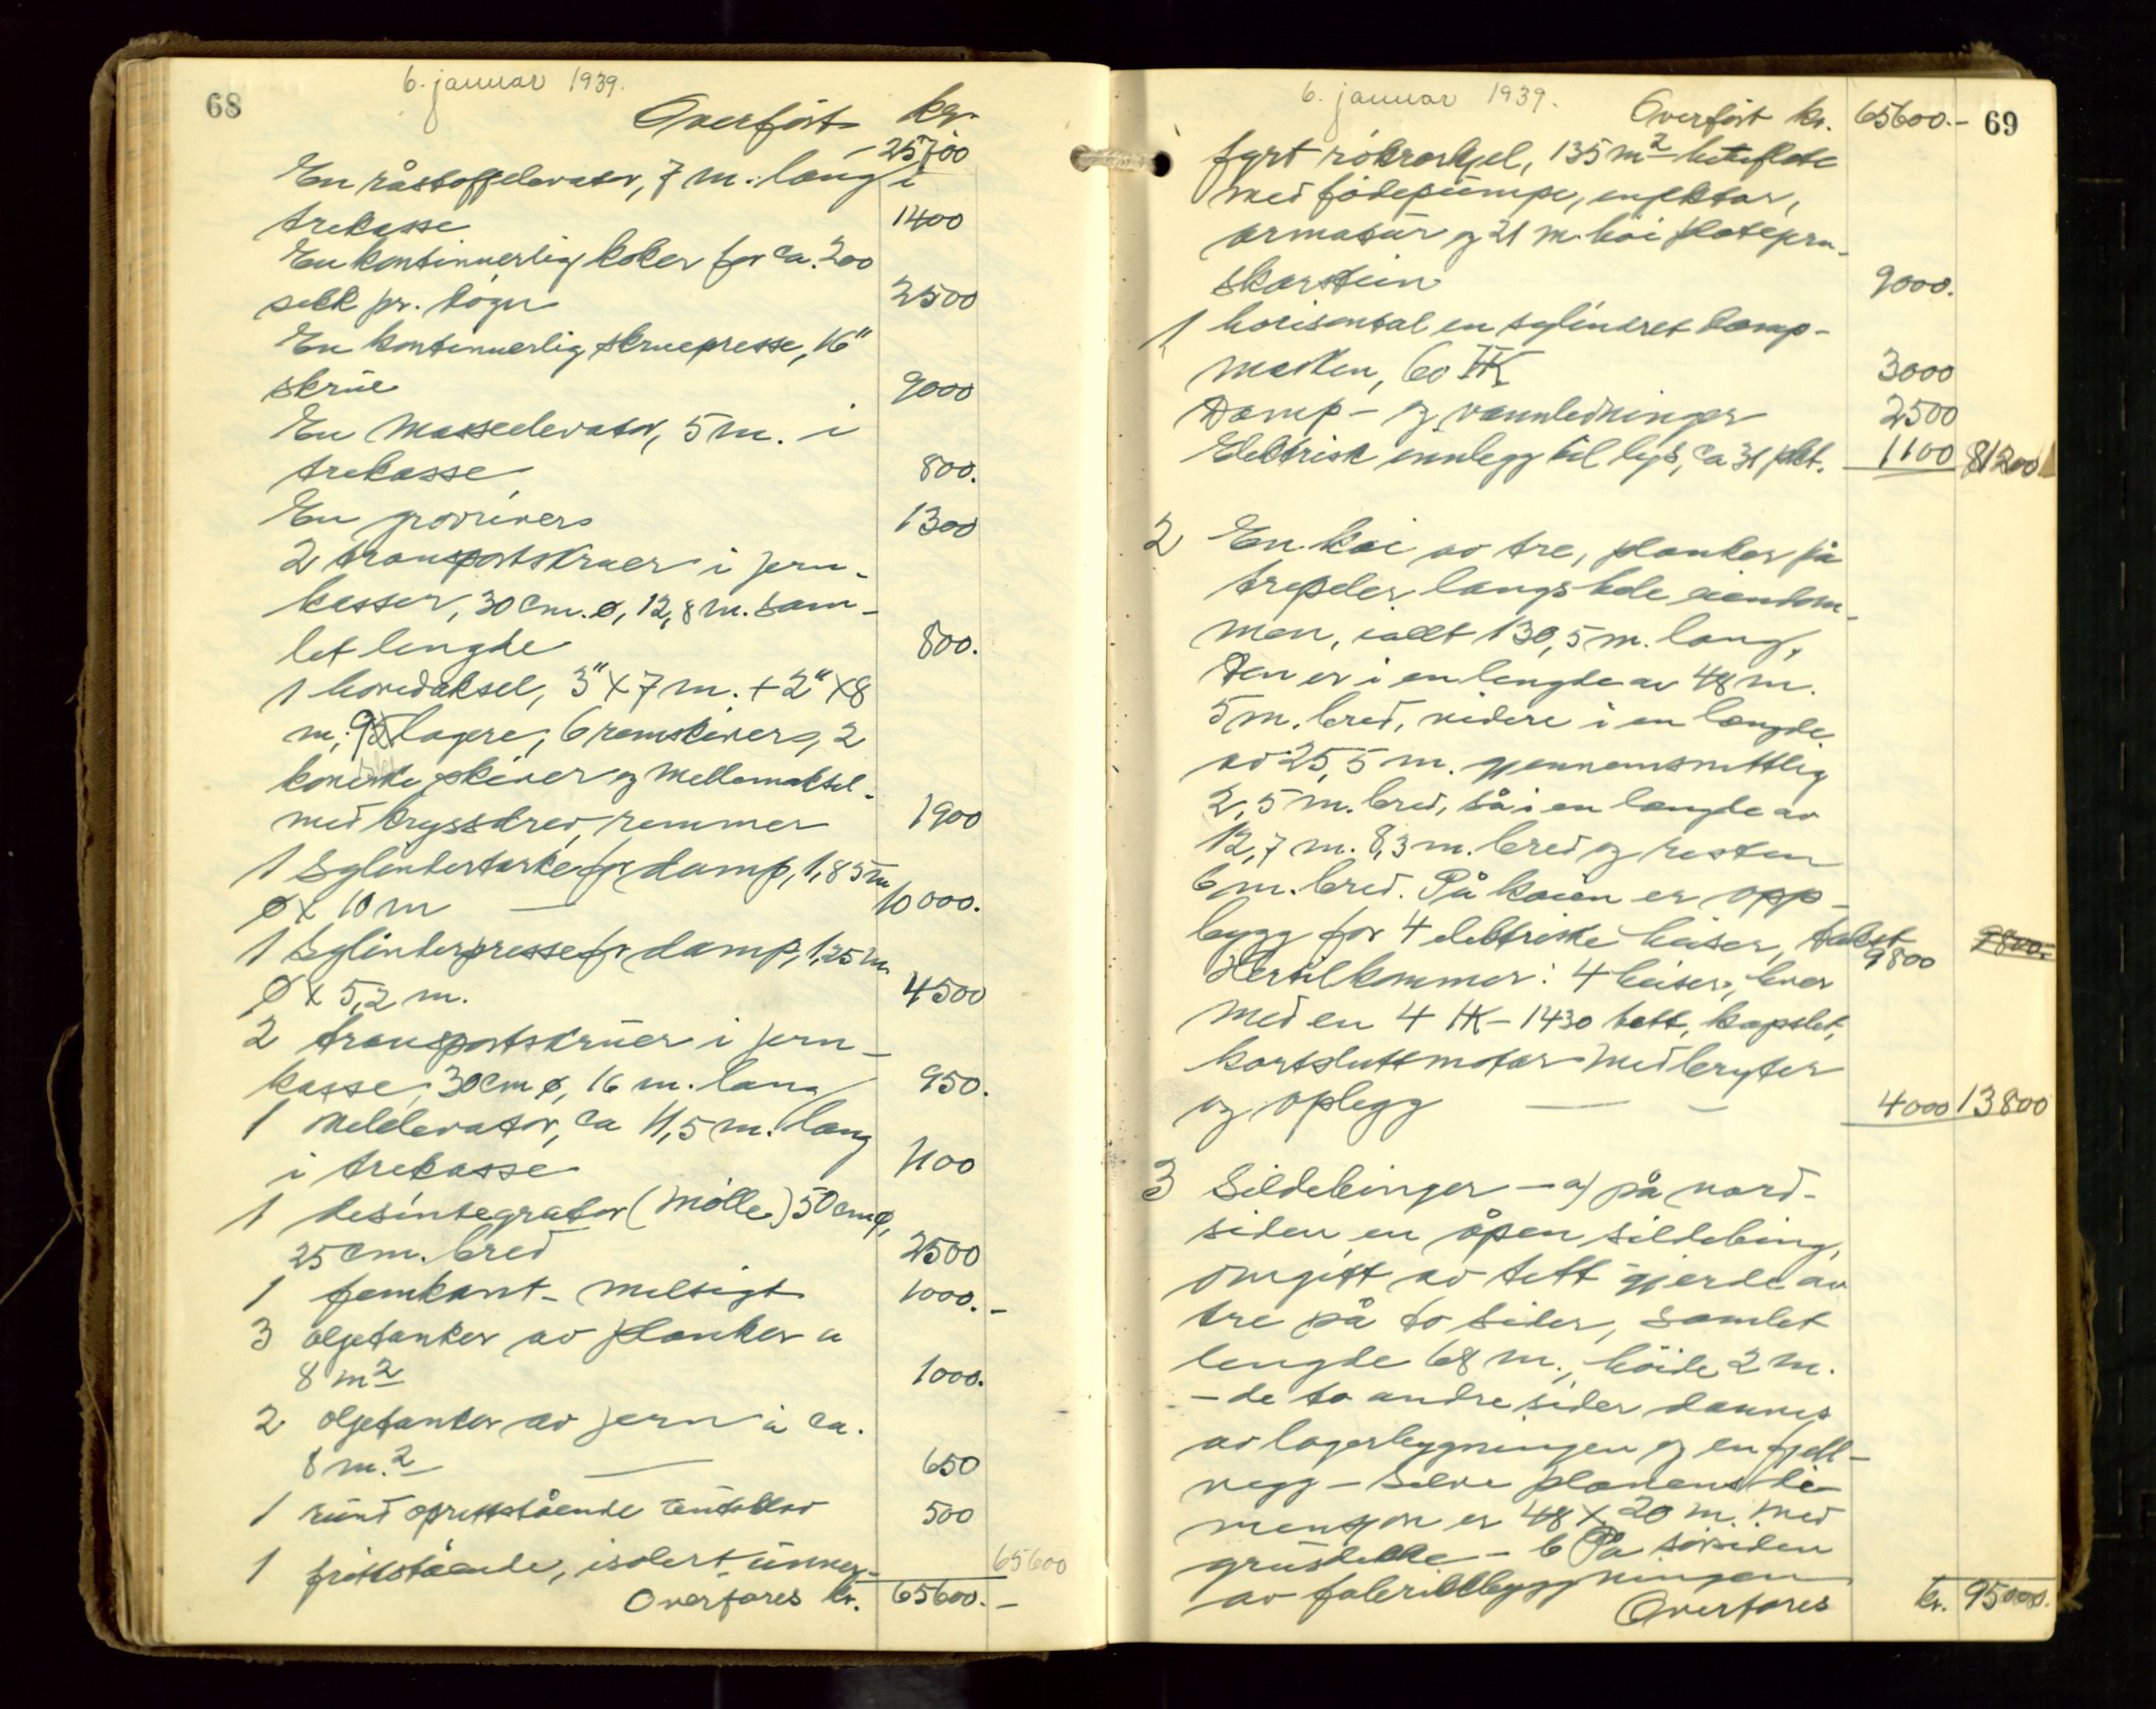 68
6. januar 1939.
Overført kr.
25700
En råstoffelevator, 7 m. lang i
trekasse 1400
En kontinuerlig koker for ca. 200
sekk pr. døgn 2500
En kontinuerlig skruepresse, 16"
skrue 9000
En masseelevator, 5 m. i
trekasse 800.
En grovriver 1300
2 transportskruer i jern-
kasser, 30 cm. ø, 12,8 m. sam-
let lengde 800.
1 hovedaksel, 3" x 7 m. + 2" x 8
m, 9 lagere, 6 remskiver, 2
koniske skiver og mellemaksel
med kryssdrev, remmer 1900
1 Sylindertørke for damp, 1,85 m
ø x 10 m — 10000.
1 Sylinderpresse for damp, 1,25 m
ø x 5,2 m. 4500
2 transportskruer i jern-
kasse, 30 cm ø, 16 m. lang 950.
1 melelevator, ca 11,5 m. lang
i trekasse 1100
1 desintegrator (Mølle) 50 cm ø,
25 cm. bred 2500
1 femkant- melsigt 1000.-
3 oljetanker av planker a
8 m² 1000.
2 oljetanker av jern à ca.
8 m.² — 650
1 rund oprettstående 500
1 frittstående, isolert, unner- 65600
Overføres kr. 65600.-
69
6. januar 1939.
Overført kr. 65600.-
fyrt rökrørkjel, 135 m² heteflate
med födepumpe, injektor,
armatur og 21 m. høi platejern-
skorstein 9000.
1 horisontal en sylindret damp-
maskin, 60 HK 3000
Damp- og vannledninger 2500
Elektrisk innlegg til lys, ca 31 pkt. 1100 81200
2 En kai av tre, planker på
trepeler langs hele eiendom-
men, iallt 130,5 m. lang,
Den er i en lengde av 48 m.
5 m. bred, videre i en længde
av 25,5 m. gjennemsnittlig
2,5 m. bred, så i en længde av
12,7 m. 8,3 m. bred og resten
6 m. bred. På kaien er opp-
bygg for 4 elektriske heiser, takst 9800.
9800
Hertil kommer: 4 heiser, hver
med en 4 HK - 1430 hett. kapslet,
kortsluttmotor med bryter
og oplegg — — 4000 13800
3 Sildebinger - a) på nord-
siden en åpen sildebing,
omgitt av tett gjerde av
tre på to sider, samlet
lengde 68 m., höide 2 m.
- de to andre sider dannes
av lagerbygningen og en fjell-
vegg - Selve planens di-
mensjon er 48 x 20 m. med
grusdekke - b På sørsiden
av fabrikkbyggningen
Overføres kr. 95000.